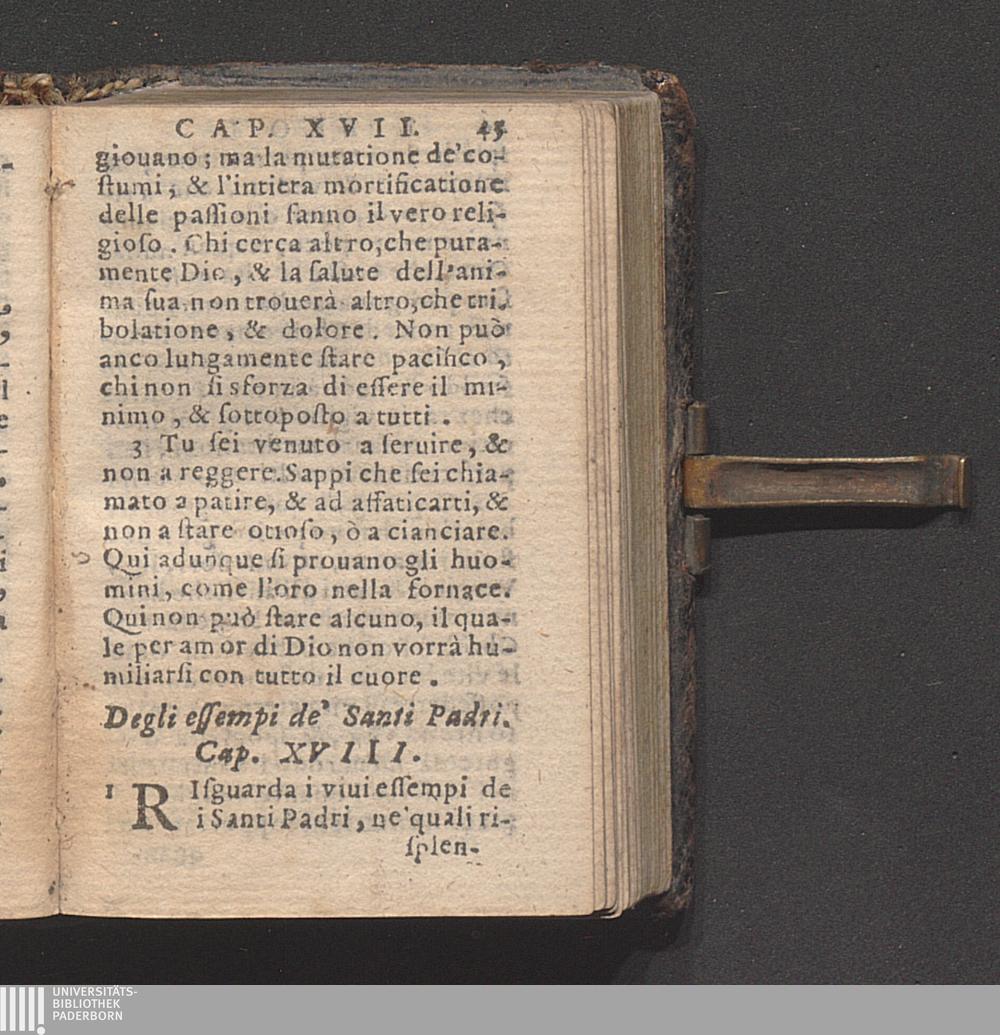 CAP. XVII. 45
giouano; ma la mutatione de'co-
ſtumi, & l'intiera mortificatione
delle paſſioni fanno il vero reli-
gioſo. Chi cerca altro, che pura-
mente Dio, & la ſalute dell'ani-
ma ſua, non trouerà altro, che tri-
bolatione, & dolore. Non può
anco lungamente ſtare pacifico,
chi non ſi sforza di eſſere il mi-
nimo, & ſottopoſto a tutti.
3 Tu ſei venuto a ſeruire, &
non a reggere. Sappi che ſei chia-
mato a patire, & ad affaticarti, &
non a ſtare otioſo, ò a cianciare.
Qui adunque ſi prouano gli huo-
mini, come l'oro nella fornace.
Qui non può ſtare alcuno, il qua-
le per amor di Dio non vorrà hu-
miliarſi con tutto il cuore.
Degli eſſempi de' Santi Padri.
Cap. XVIII.
1 RIſguarda i viui eſſempi de
i Santi Padri, ne' quali ri-
ſplen-
UNIVERSITÄTS-
BIBLIOTHEK
PADERBORN